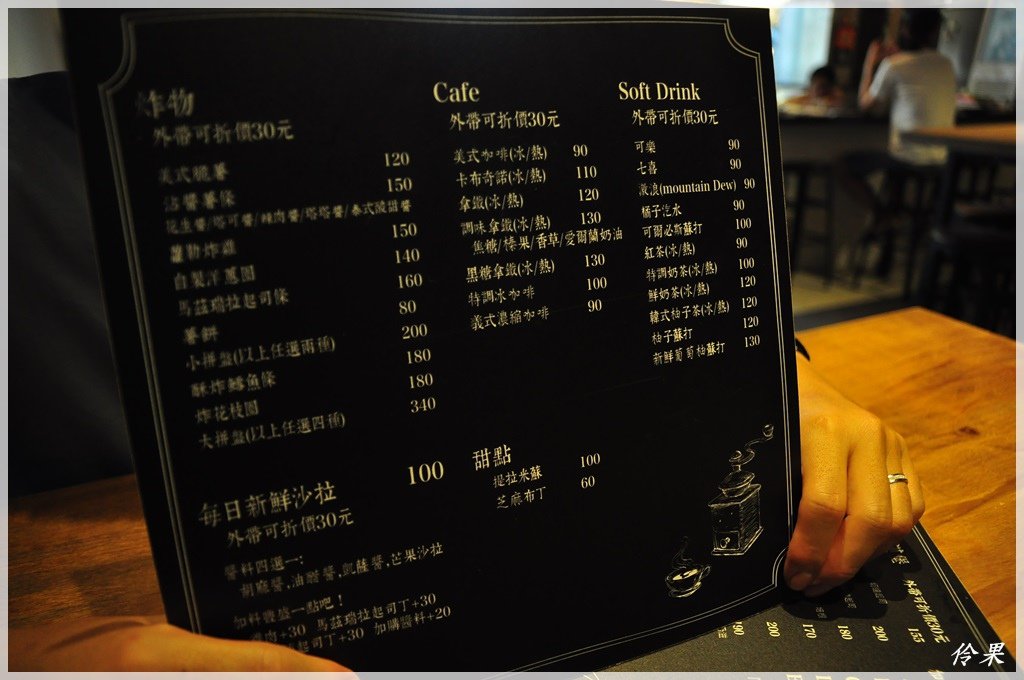 炸物
外帶可折價30元
美式脆薯 120
沾醬薯條 150
花生醬/塔可醬/辣肉醬/塔塔醬/泰式酸甜醬
薑勒炸雞 150
自製洋蔥圈 140
馬茲瑞拉起司條 160
薯餅 80
小拼盤(以上任選兩種) 200
酥炸鱈魚條 180
炸花枝圈 180
大拼盤(以上任選四種) 340
每日新鮮沙拉 100
外帶可折價30元
醬料四選一:
胡麻醬,油醋醬,凱薩醬,芒果沙拉
加料豐盛一點吧！
雞肉+30 馬茲瑞拉起司丁+30
起司丁+30 加購醬料+20
Cafe
外帶可折價30元
美式咖啡(冰/熱) 90
卡布奇諾(冰/熱) 110
拿鐵(冰/熱) 120
調味拿鐵(冰/熱) 130
焦糖/榛果/香草/愛爾蘭奶油
黑糖拿鐵(冰/熱) 130
特調冰咖啡 100
義式濃縮咖啡 90
甜點
提拉米蘇 100
芝麻布丁 60
Soft Drink
外帶可折價30元
可樂 90
七喜 90
激浪(mountain Dew) 90
橘子汽水 90
可爾必斯蘇打 100
紅茶(冰/熱) 90
特調奶茶(冰/熱) 100
鮮奶茶(冰/熱) 120
韓式柚子茶(冰/熱) 120
柚子蘇打 120
新鮮葡萄柚蘇打 130
外帶可折價30元
155
200
180
170
200
190
伶果